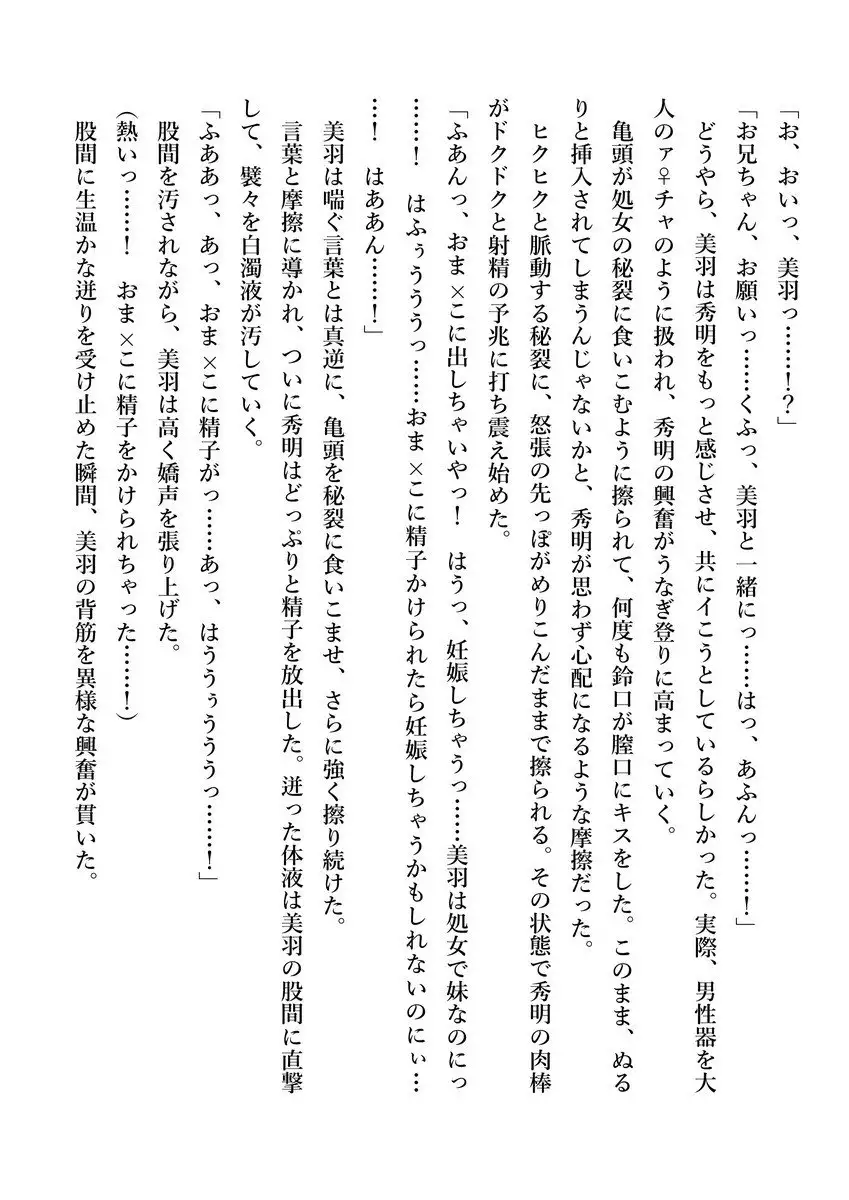 「お、おいっ、美羽っ……!?」
「お兄ちゃん、お願いっ……くふっ、美羽と一緒にっ……はっ、あふんっ……!」
どうやら、美羽は秀明をもっと感じさせ、共にイこうとしているらしかった。実際、男性器を大
人のァ♀チャのように扱われ、秀明の興奮がうなぎ登りに高まっていく。
亀頭が処女の秘裂に食いこむように擦られて、何度も鈴口が膣口にキスをした。このまま、ぬる
りと挿入されてしまうんじゃないかと、秀明が思わず心配になるような摩擦だった。
ヒクヒクと脈動する秘裂に、怒張の先っぽがめりこんだままで擦られる。その状態で秀明の肉棒
がドクドクと射精の予兆に打ち震え始めた。
「ふあんっ、おま×こに出しちゃいやっ! はうっ、妊娠しちゃうっ……美羽は処女で妹なのにっ
……! はふぅううっ……おま×こに精子かけられたら妊娠しちゃうかもしれないのにぃ…
…! はああん……!」
美羽は喘ぐ言葉とは真逆に、亀頭を秘裂に食いこませ、さらに強く擦り続けた。
言葉と摩擦に導かれ、ついに秀明はどっぷりと精子を放出した。迸った体液は美羽の股間に直撃
して、襞々を白濁液が汚していく。
「ふああっ、あっ、おま×こに精子がっ……あっ、はううぅううっ……!」
股間を汚されながら、美羽は高く嬌声を張り上げた。
(熱いっ……! おま×こに精子をかけられちゃった……!)
股間に生温かな迸りを受け止めた瞬間、美羽の背筋を異様な興奮が貫いた。